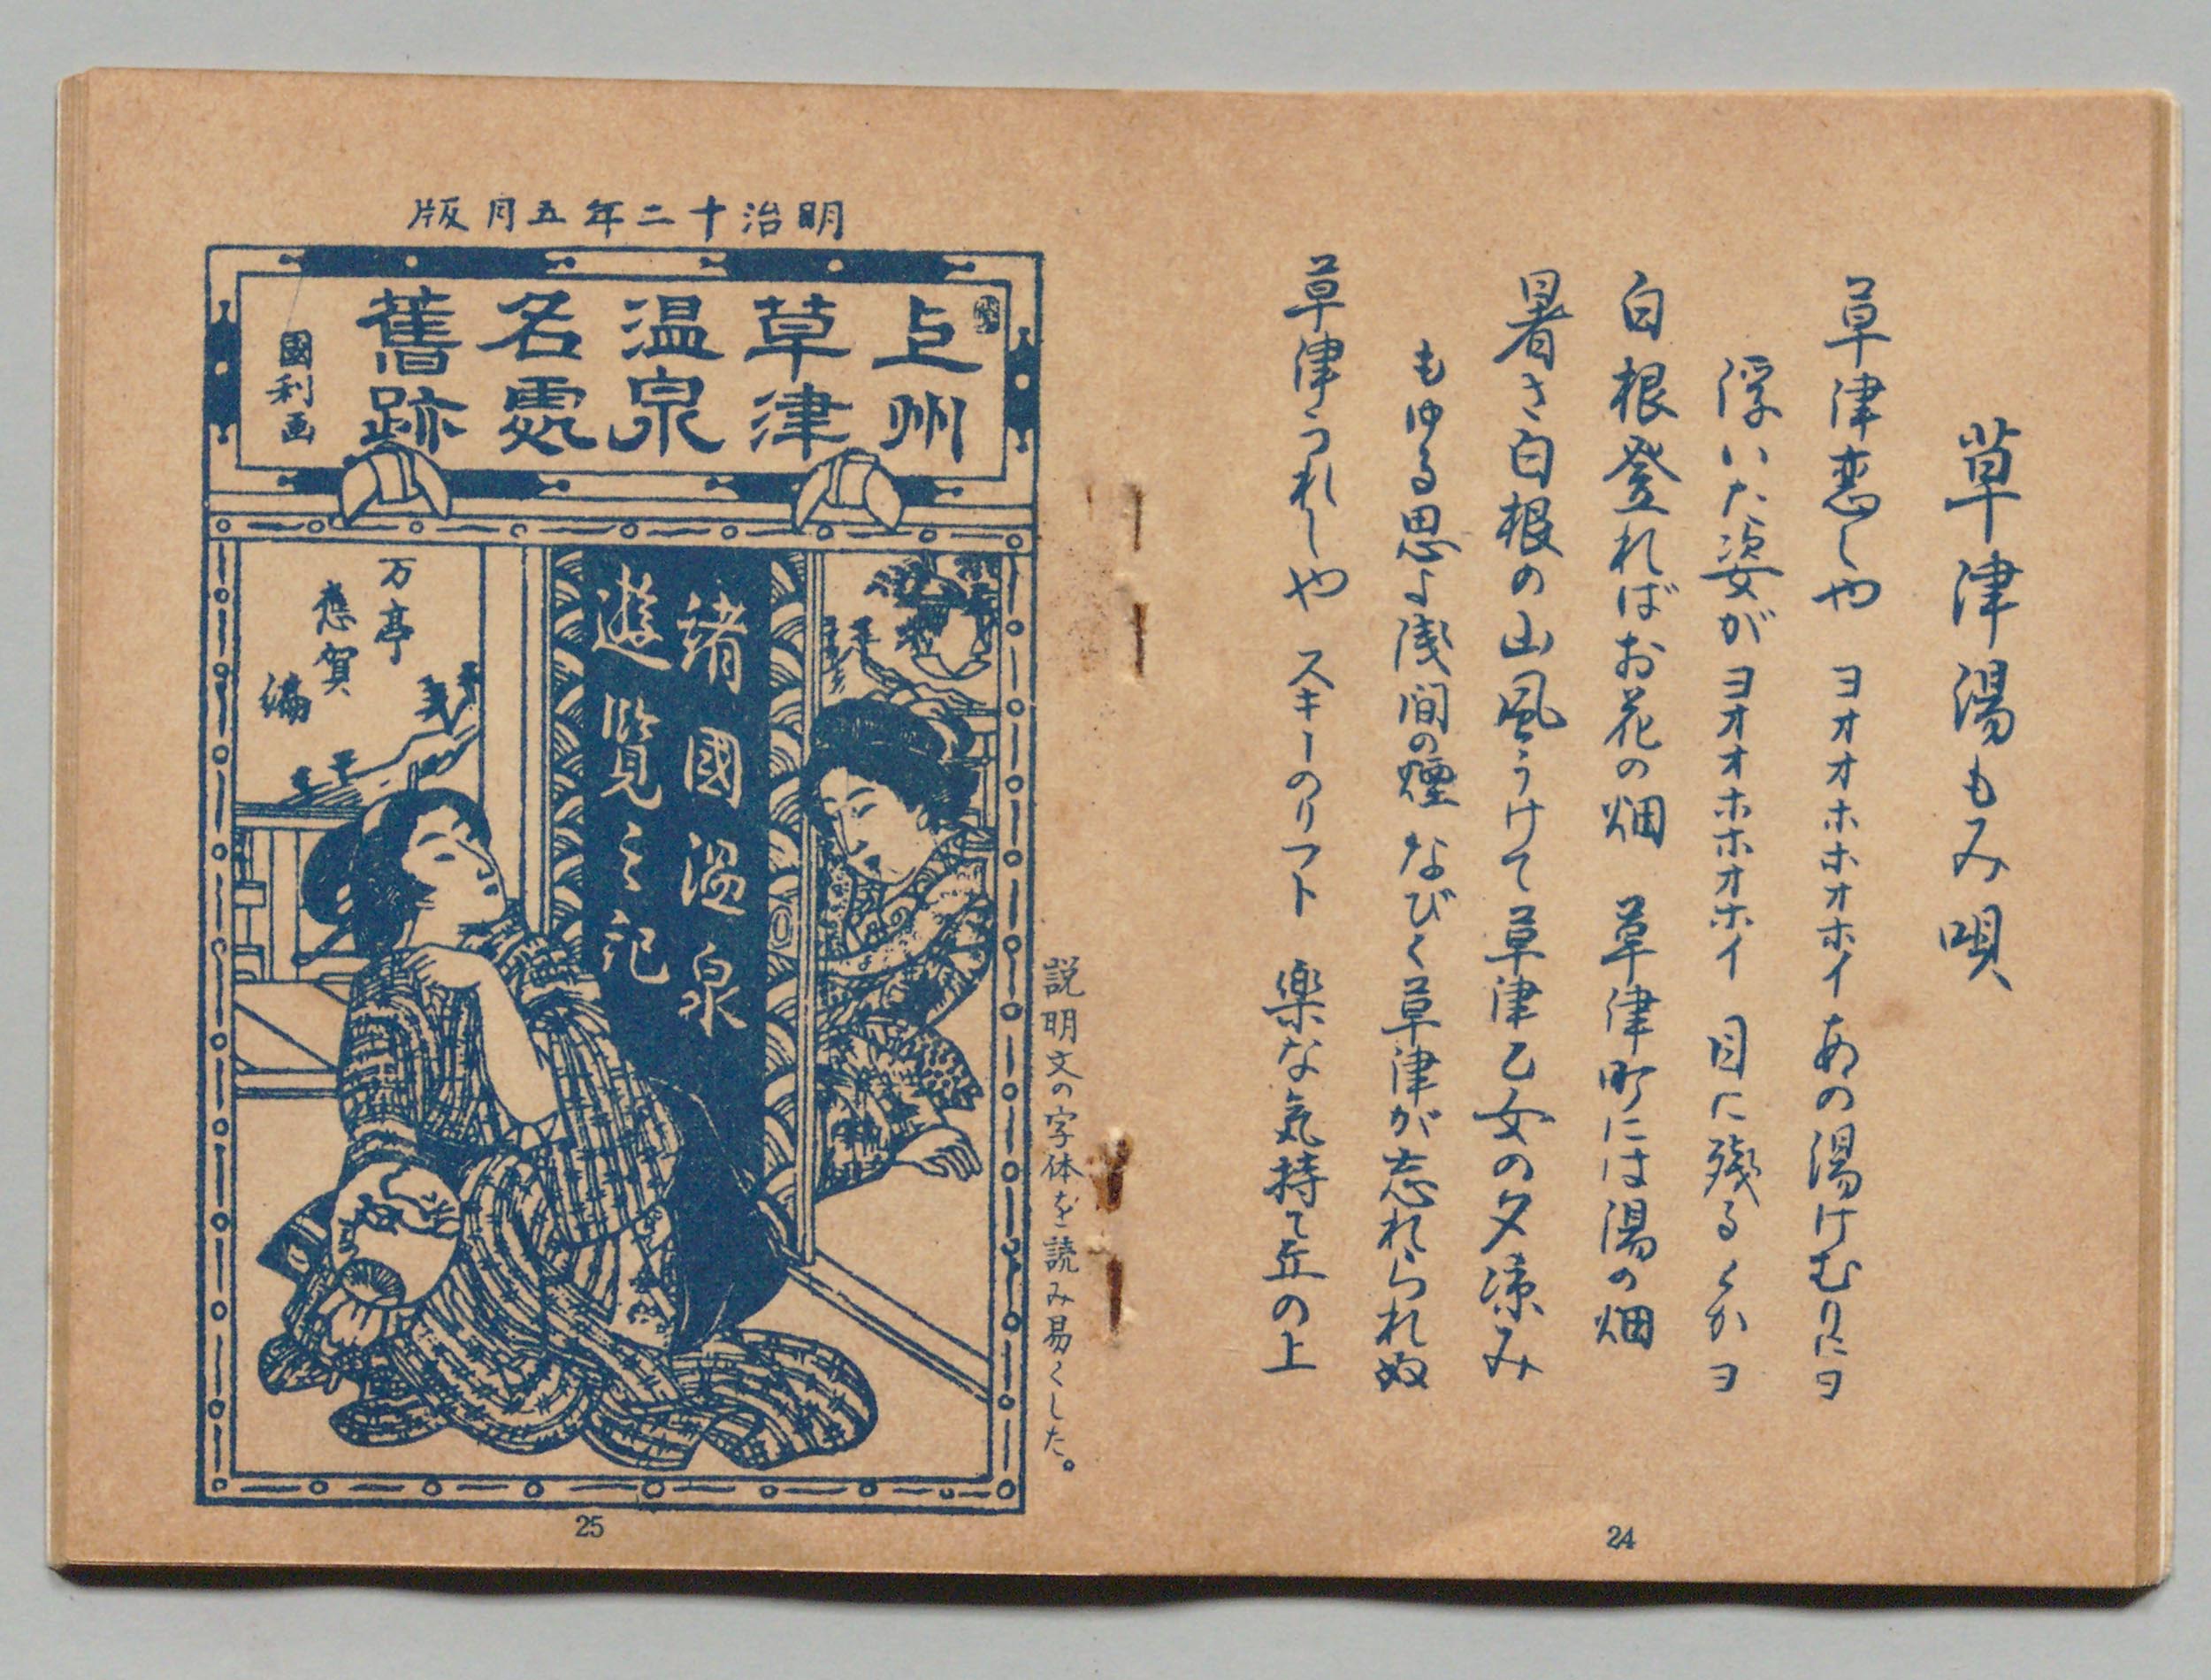 草津湯もみ唄
草津恋しや ヨオオホホオホイ あの湯けむりにヨ
浮いた姿が ヨオオホホオホイ 目に残るくかヨ
白根登ればお花の畑 草津町には湯の畑
暑さ白根の山風うけて草津乙女の夕涼み
もゆる思よ浅間の煙 なびく草津が忘れられぬ
草津うれしや スキーのリフト 楽な気持で丘の上
24
明治十二年五月版
上州
草津
温泉
名處
舊跡
國利画
諸國温泉
遊覧之記
万亭
應賀
編
説明文の字体を読み易くした。
25